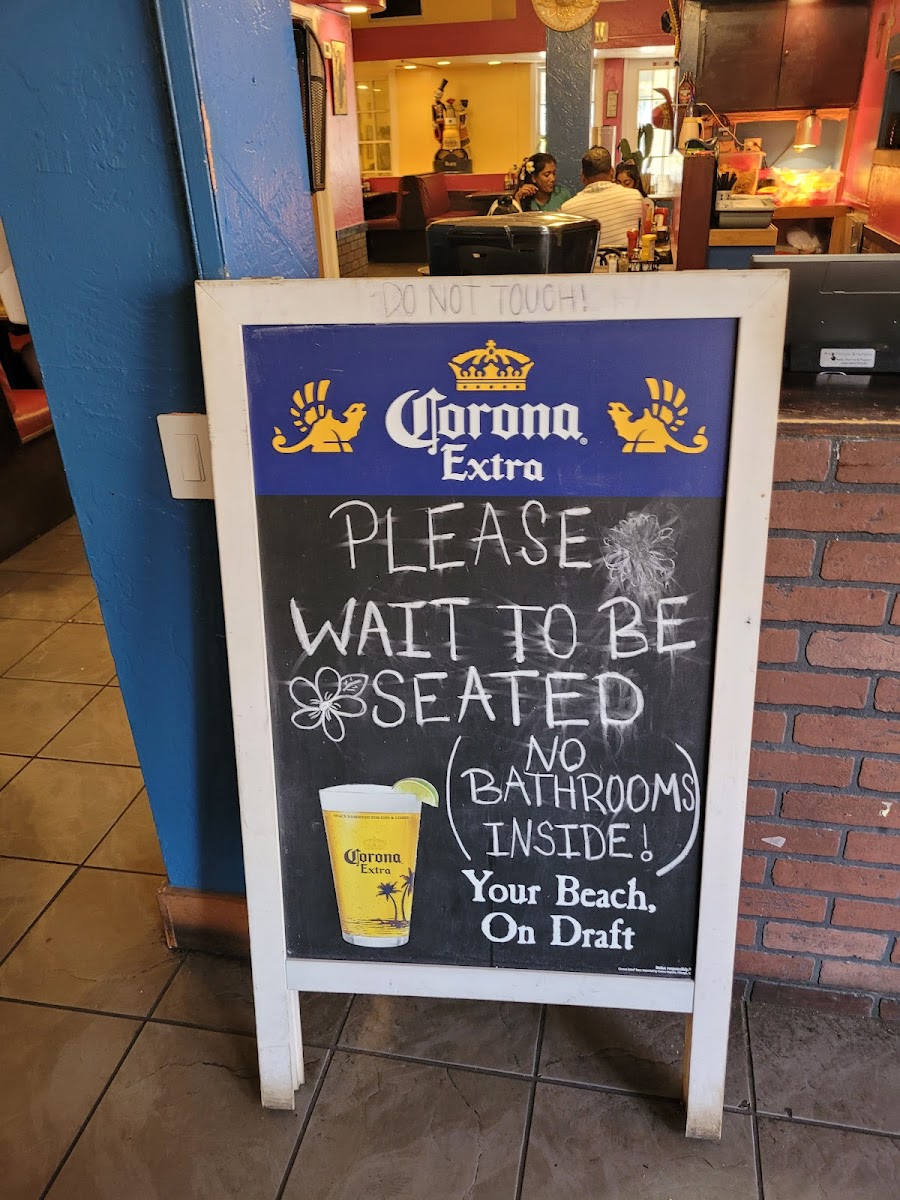 DO NOT TOUCH!
Corona
Extra
PLEASE
WAIT TO BE
SEATED
(NO
BATHROOMS
INSIDE!)
Corona
Extra
Your Beach,
On Draft